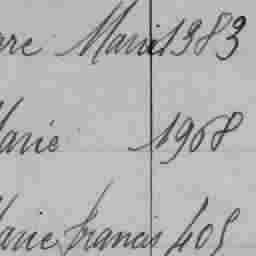 are Marie 1983
Marie 1968
Marie francis 405